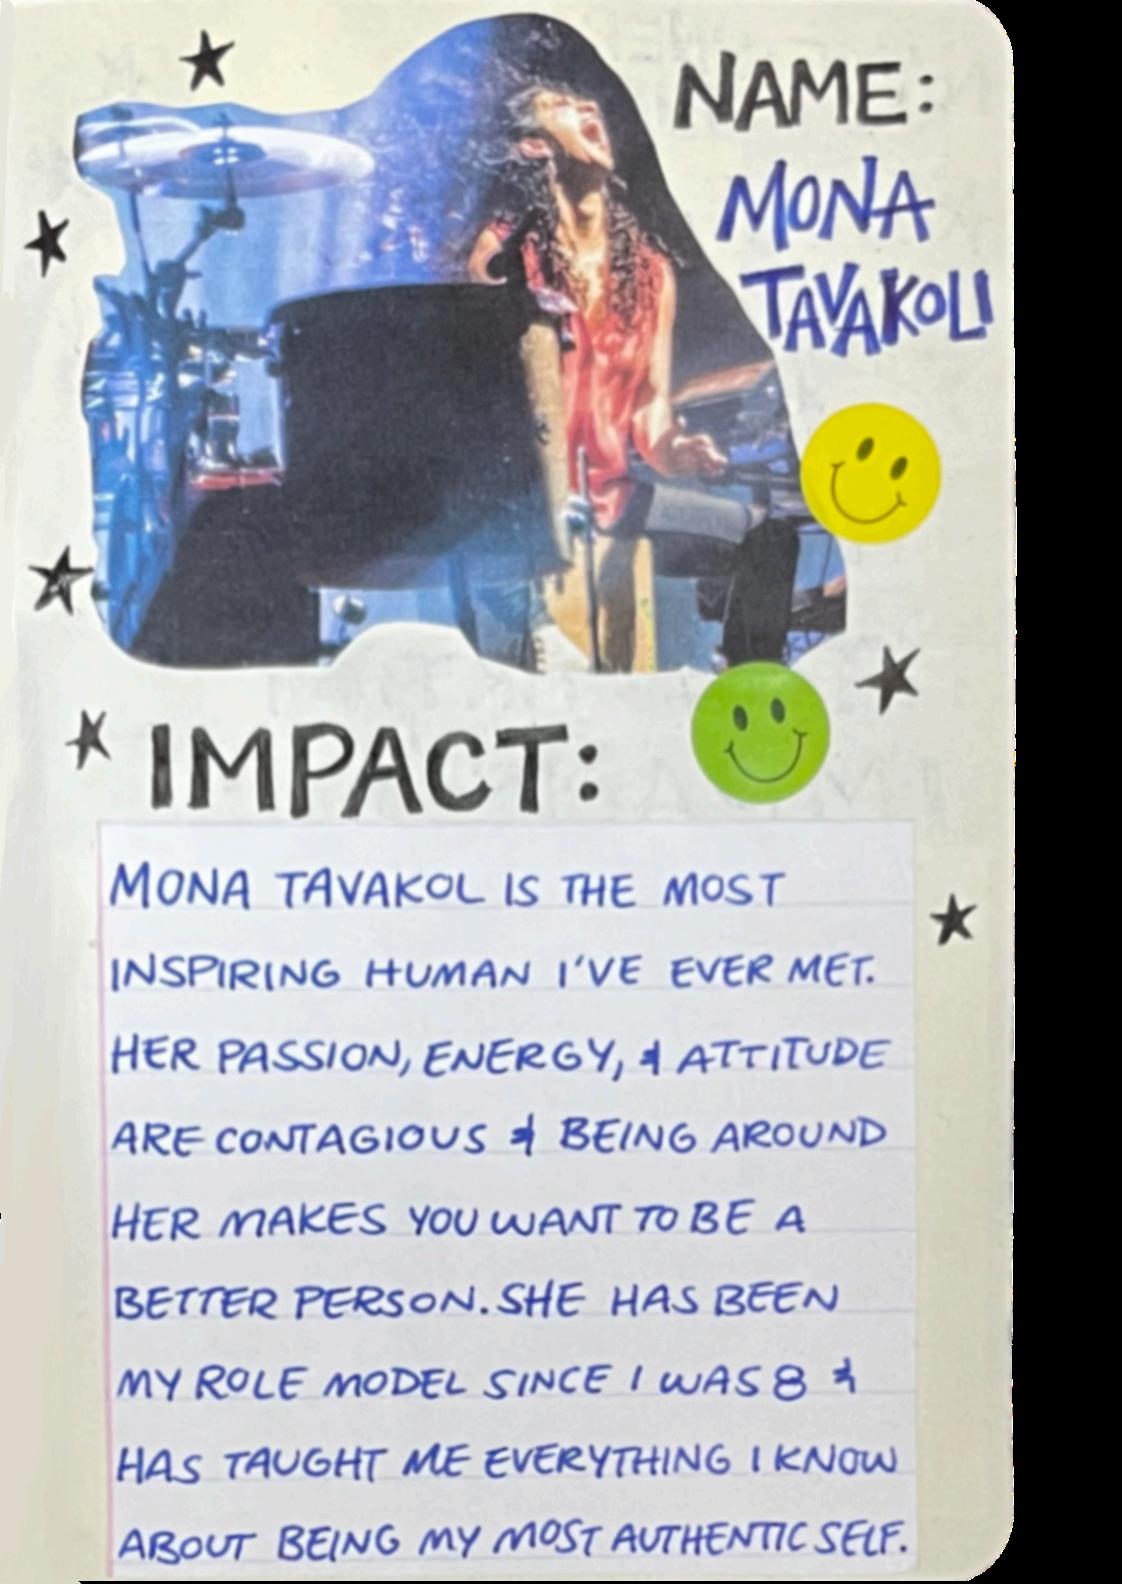 NAME:
MONA
TAVAKOLI
IMPACT:
MONA TAVAKOL IS THE MOST
INSPIRING HUMAN I'VE EVER MET.
HER PASSION, ENERGY, & ATTITUDE
ARE CONTAGIOUS & BEING AROUND
HER MAKES YOU WANT TO BE A
BETTER PERSON. SHE HAS BEEN
MY ROLE MODEL SINCE I WAS 8 &
HAS TAUGHT ME EVERYTHING I KNOW
ABOUT BEING MY MOST AUTHENTIC SELF.